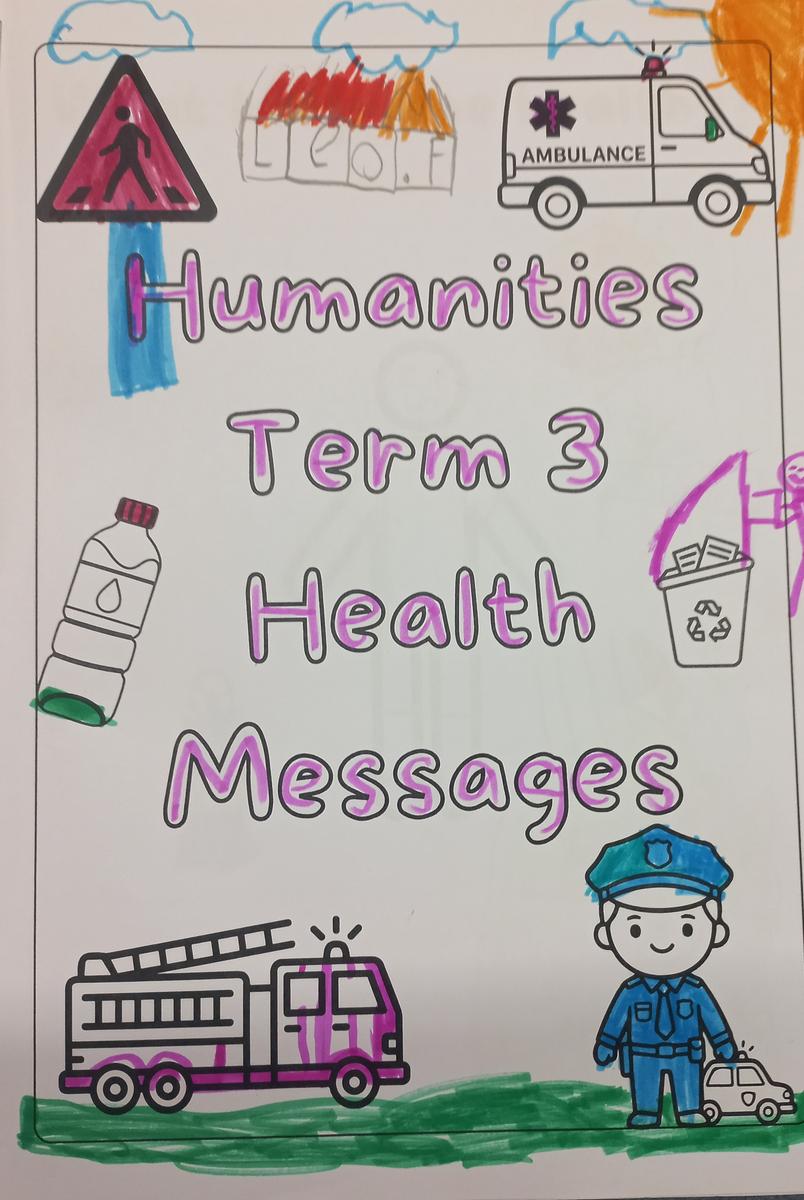 Leo.F
AMBULANCE
Humanities
Term 3
Health
Messages